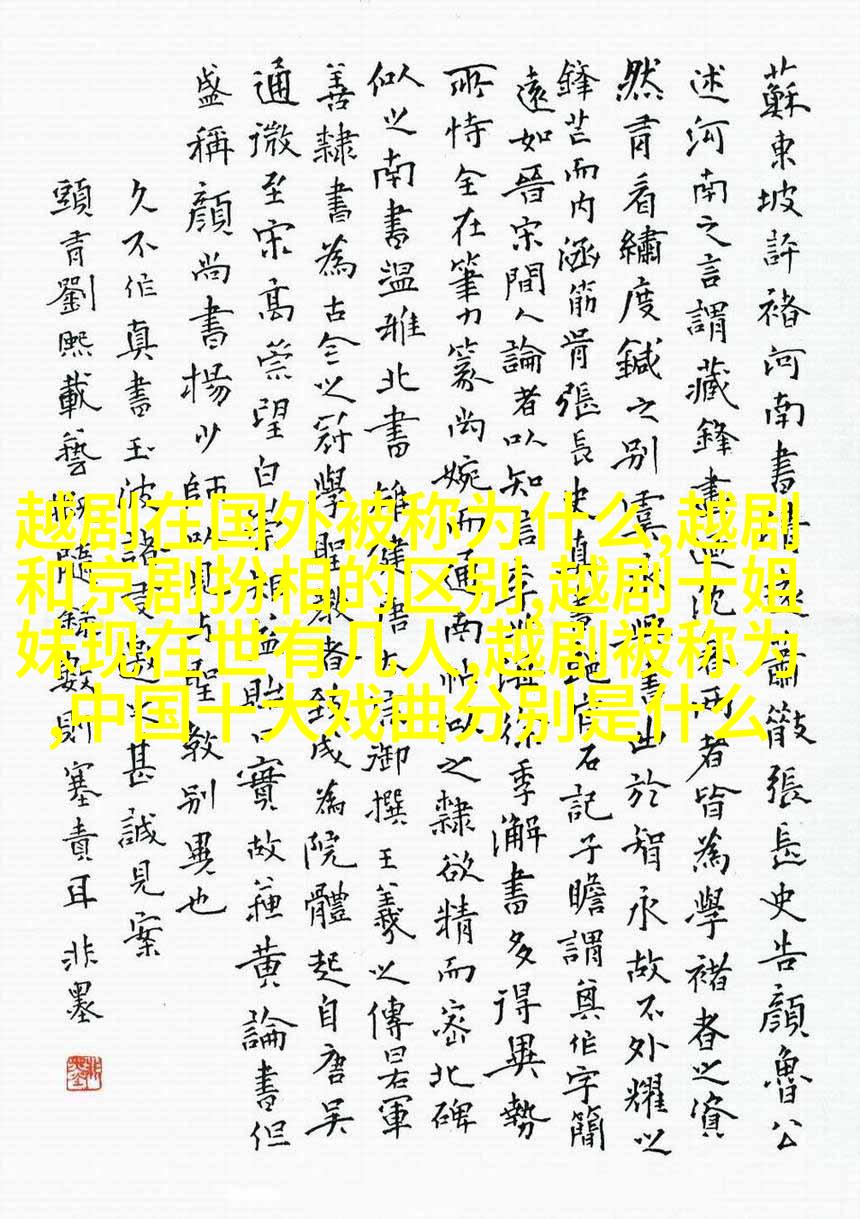 蘇東坡評褚河南書清遠蕭散張長史告顏魯公
述河南之言謂藏鋒畫
沈著兩者皆為學褚者之資
然有看繡度鍼之別
出於智永故不外耀以
鋒芒而內涵筋骨張長史真書
記子瞻謂其作字簡
遠如晉宋間人論者以知言
季海書多得異勢
所恃全在筆力篆尚婉而通南帖似之隸欲精而密北碑
似之南書溫雅北書雄健
御撰王羲之傳昃軍
善隸書為古今之冠學聖教者致成為院體起自唐吳
通微至宋高崇望白
貽實故蘇黃論書但
盛稱顏尚書楊少師
聖教別異也
久不作真書玉波諸
甚誠見案
頭有劉熙載藝概隨錄數則塞責耳非墨
越剧在国外被称为什么,越剧
和京剧扮相的区别,越剧十姐
妹现在世有几人,越剧被称为
,中国十大戏曲分别是什么